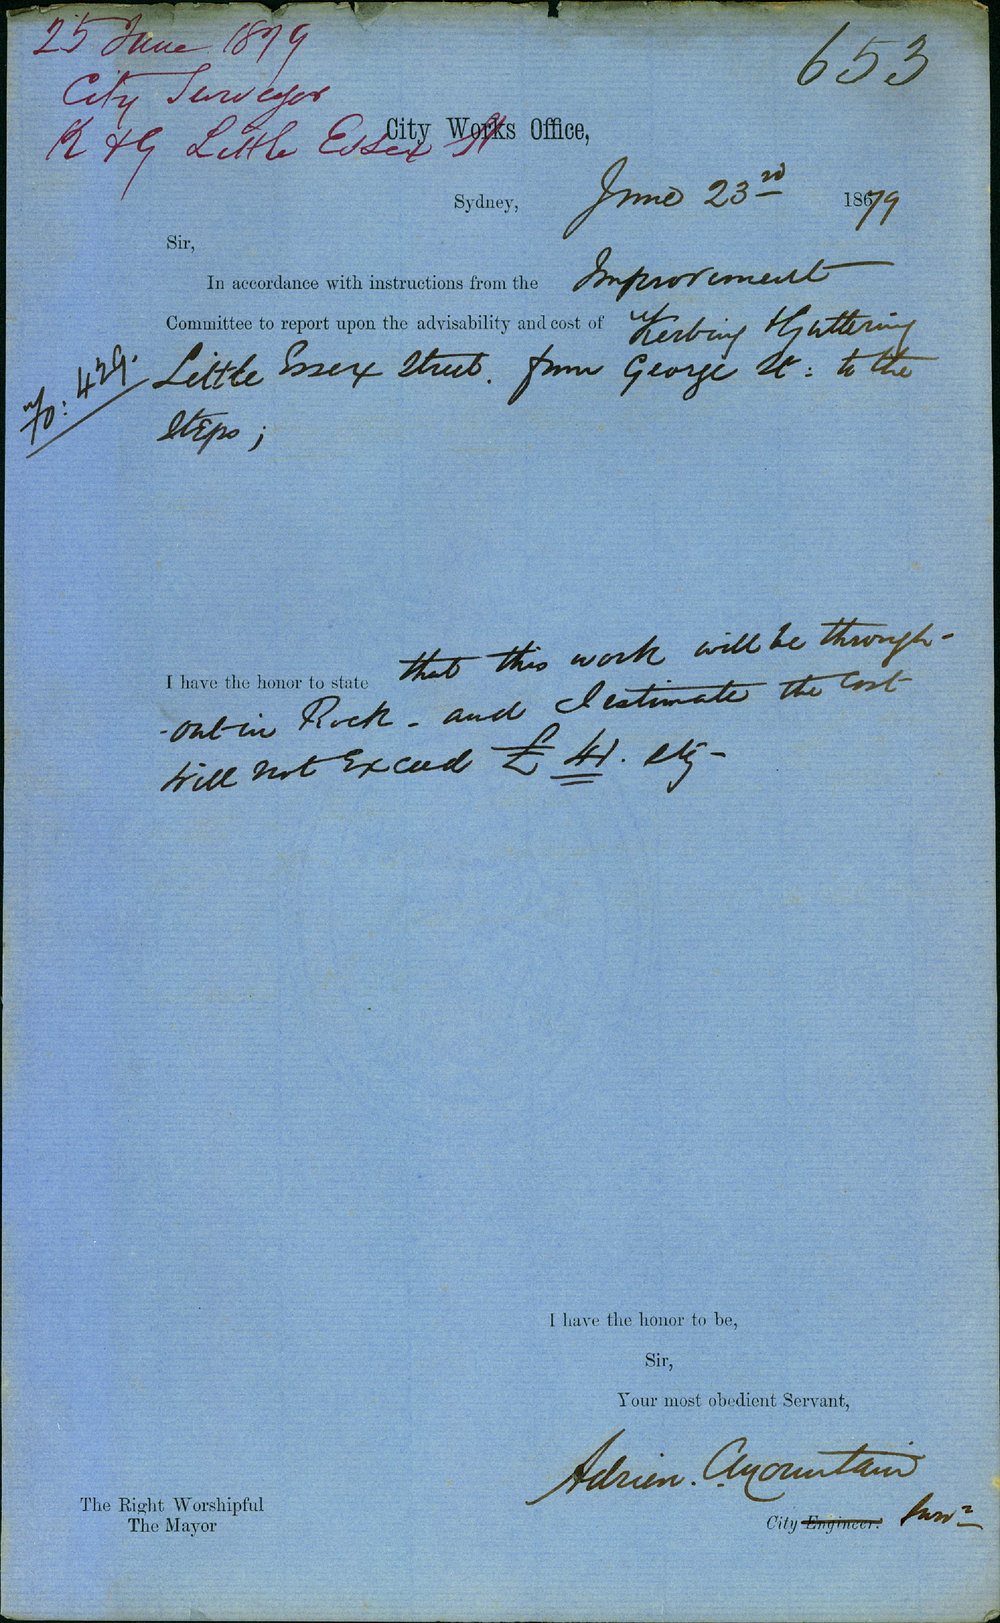 25 June 1879
653
City Surveyor
K & G Little Essex St
City Works Office,
Sydney, June 23rd 1879
Sir,
In accordance with instructions from the Improvement
Committee to report upon the advisability and cost of Kerbing & Guttering
Little Essex Street. from George St: to the
Steps;
No: 429.
I have the honor to state that this work will be through-
-out in Rock - and I estimate the Cost
Will not Exceed £ 41. stg -
I have the honor to be,
Sir,
Your most obedient Servant,
Adrien. C. Mountain
City Engineer. Surv.
The Right Worshipful
The Mayor